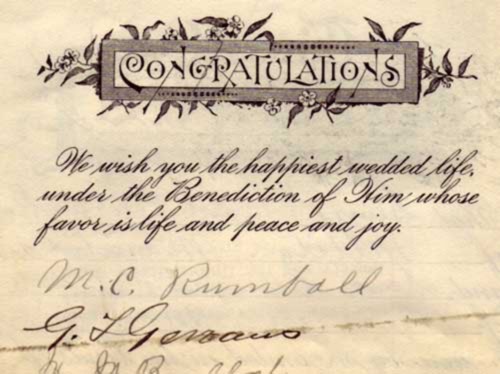 CONGRATULATIONS
We wish you the happiest wedded life,
under the Benediction of Him whose
favor is life and peace and joy.
M. C. Rumball
G. T.